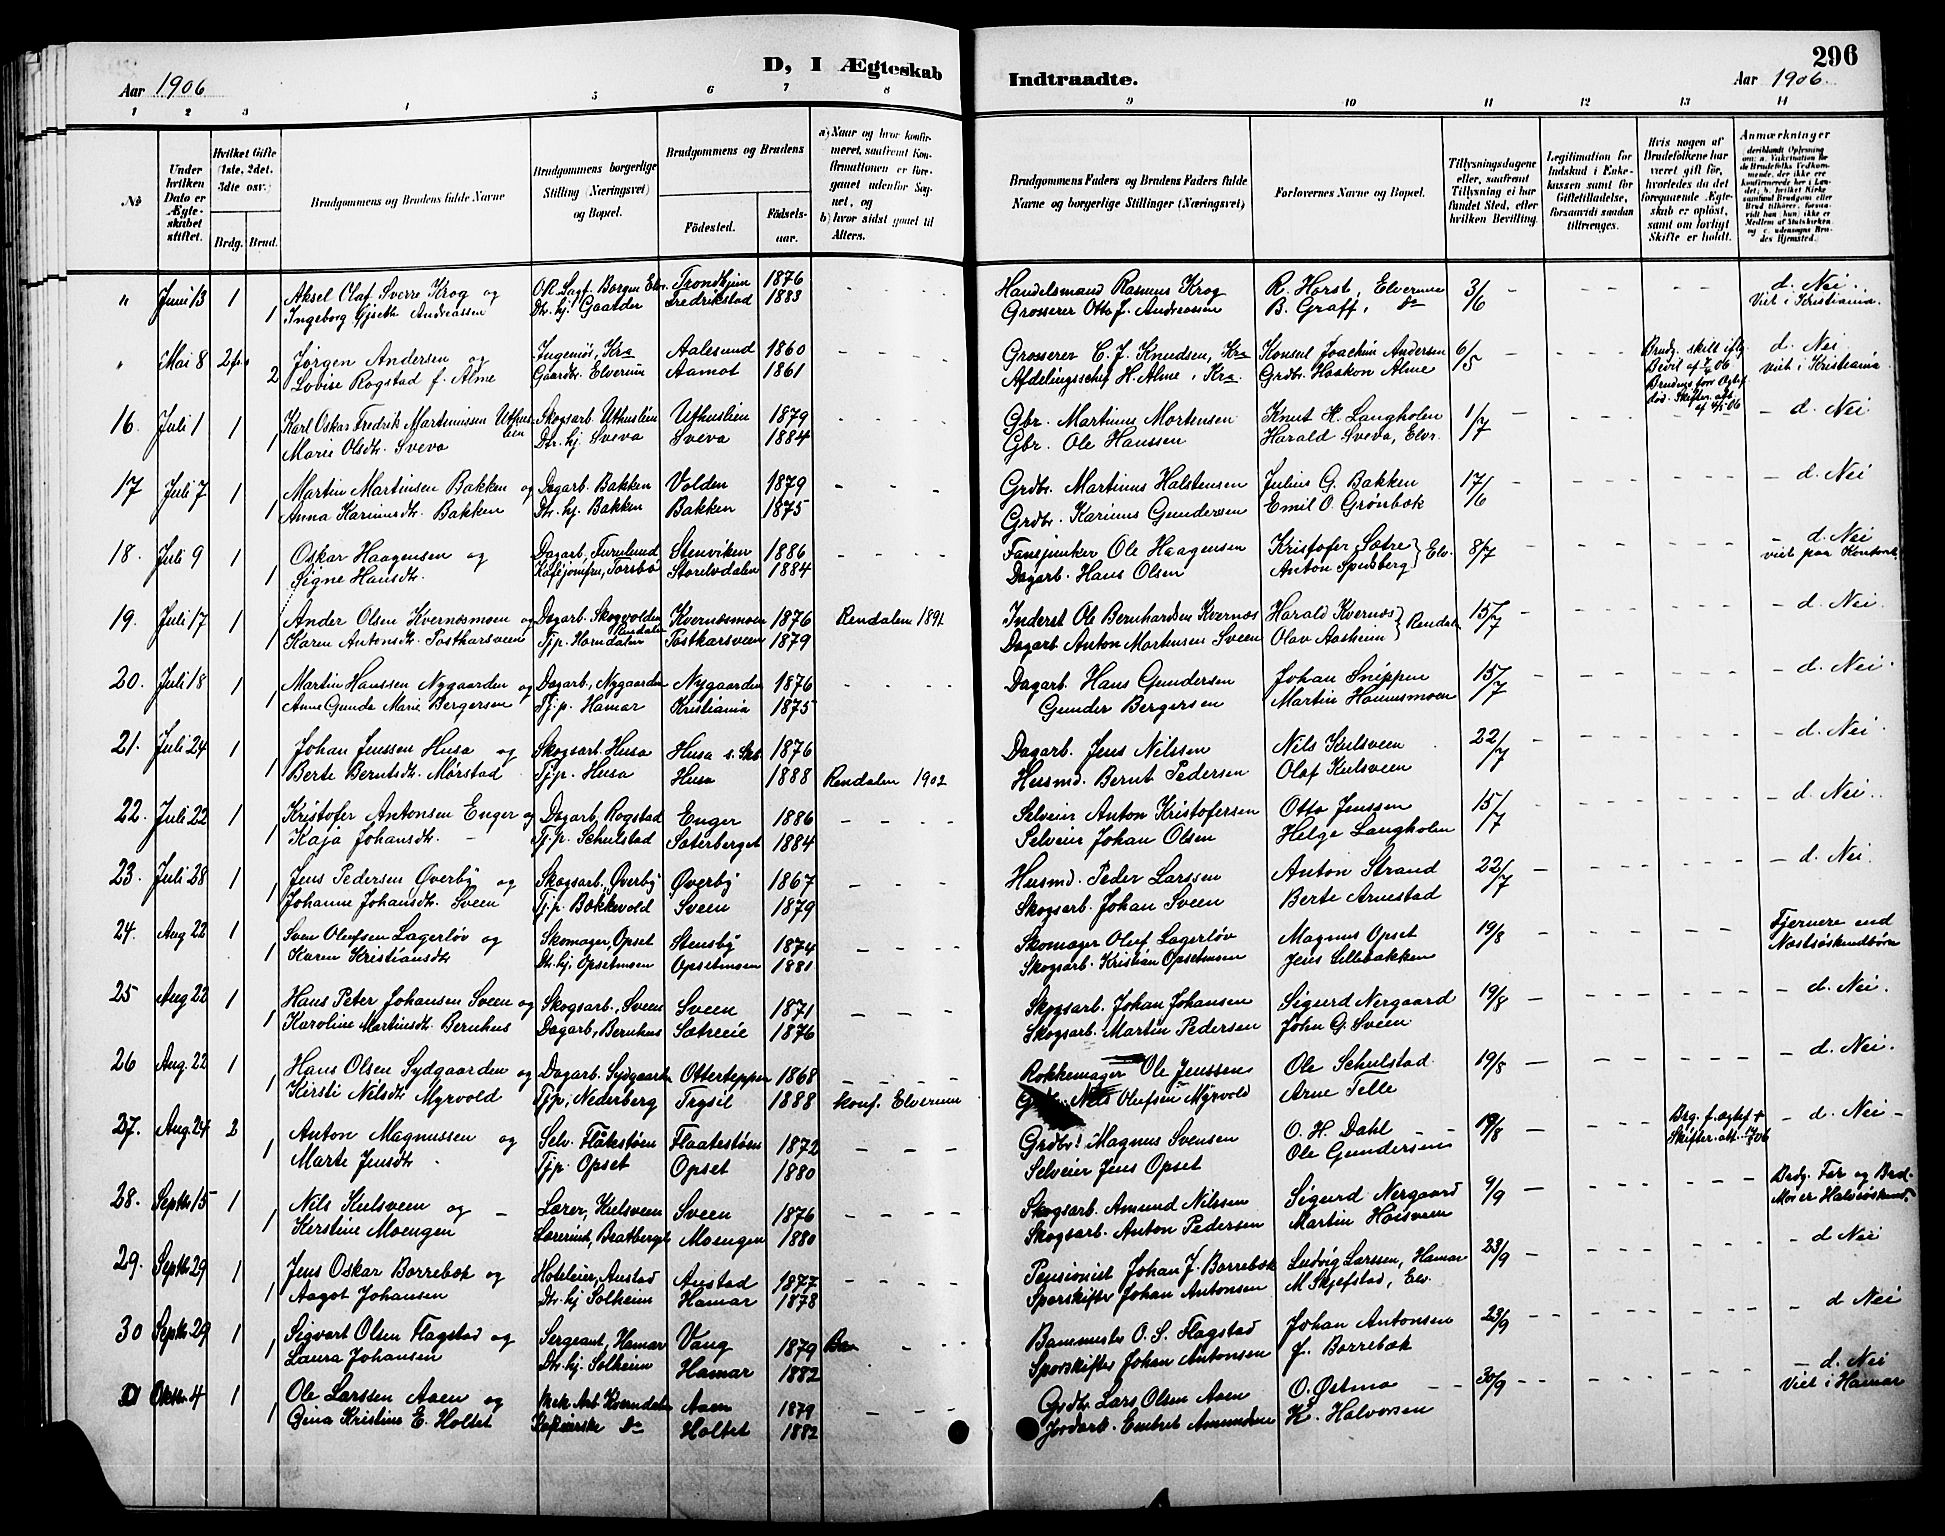 296
D, I Ægteskab Indtraadte.
Aar 1906
Aar 1906.
1 2 3 4 5 6 7 8 9 10 11 12 13 14
No
Under hvilken Dato er Ægteskabet stiftet.
Hvilket Gifte (1ste, 2det, 3die osv.)
Brdg. Brud.
Brudgommens og Brudens fulde Navne
Brudgommens borgerlige Stilling (Næringsvei) og Bopæl.
Brudgommens og Brudens
Fødested.
Fødselsaar.
a) Naar og hvor konfirmeret, saafremt Konfirmationen er foregaaet udenfor Sognet, og
b) hvor sidst gaaet til Alters.
Brudgommens Faders og Brudens Faders fulde Navne og borgerlige Stillinger (Næringsvei)
Forlovernes Navne og Bopæl.
Tillysningsdagene eller, saafremt Tillysning ei har fundet Sted, efter hvilken Bevilling.
Legitimation for Indskud i Enkekassen samt for Giftetilladelse, forsaavidt saadan tiltrænges.
Hvis nogen af Brudefolkene har været gift før, hvorledes da det foregaaende Ægteskab er opløst, samt om lovligt Skifte er holdt.
Anmærkninger
" Juni 13 1 Aksel Olaf Sverre Krog og Trondhjem 1876 Handelsmand Rasmus Krog R. Horst, Elverum 3/6 d. Nei.
1 Ingeborg Gjseth Andreassen Dtr. hj. Gaarder Fredrikstad 1883 Grosserer Otto J. Andreassen B. Graff, do Viet i Kristiania.
" Mai 8 2 Jørgen Andersen og Ingeniør, Kra Aalesund 1860 Grosserer C. J. Knudsen, Kra Konsul Joachim Andersen 6/5 d. Nei.
2 Lovise Rogstad f. Alme Gaardbr. Elverum Aamot 1861 Afdelingschef H. Alme, Kra. Grdbr. Haakon Alme viet i Kristiania
16. Juli 1 1 Karl Oskar Fredrik Martinussen Uthuslien Skogsarb. Uthuslien Uthuslien 1879 Gbr. Martinus Mortensen Knut H. Langholen 1/7 d. Nei
1 Marie Olsdtr. Sveva Dtr. hj. Sveva Sveva 1884 Gbr. Ole Hanssen Harald Sveva, Elvr.
17 Juli 7 1 Martin Martinsen Bakken og Dagarb. Bakken Volden 1879 Grdbr. Martinus Halstensen Julius G. Bakken 17/6 d. Nei
1 Anna Kariusdtr. Bakken Dtr. hj. Bakken Bakken 1875 Grdbr. Karinus Gundersen Emil O. Grønbæk
18. Juli 9 1 Oskar Haagensen og Dagarb. Furulund Stenviken 1886 Fanejunker Ole Haagensen Kristofer Sætre Elv. 8/7 d. Nei
1 Signe Hansdtr. Kafejomfru, Torsbo Storelvdalen 1884 Dagarb. Hans Olsen Anton Spedsberg viet paa Kontoret
19. Juli 17 1 Ander Olsen Kvernesmoen og Dagarb. Skogvolden Kvernesmoen 1876 Rendalen 1891 Inderst Ole Bernhardsen Kvernes Harald Kvernes Rendal 15/7 d. Nei.
1 Karen Antonsdtr. Postkarsveen Rendalen 1879 Dagarb. Anton Mortensen Sveen Olav Aasheim
20. Juli 18 1 Martin Hanssen Nygaarden og Dagarb. Nygaarden Nygaarden 1876 Dagarb. Hans Gundersen Johan Snippen 15/7 d. Nei.
1 Anne Gunda Marie Bergersen Tj.p. Hamar Kristiania 1875 Gunder Bergersen Martin Hammsmoen
21. Juli 24 1 Johan Jenssen Husa og Skogsarb. Husa Husa 1876 Dagarb. Jens Nilssen Nils Kulsveen 22/7 d. Nei.
1 Berte Berntsdtr. Mørstad Tj.p. Husa Husa 1888 Rendalen 1902 Husmd. Bernt Pedersen Olaf Kulsveen
22. Juli 22 1 Kristofer Antonsen Enger og Dagarb. Rogstad Enger 1886 Selveier Anton Kristofersen Otto Jenssen 15/7 d. Nei.
1 Kaja Johansdtr. Tj.p. Schulstad Sæterberget 1884 Selveier Johan Olsen Helge Langholen
23. Juli 28 1 Jens Pedersen Øverby og Skogsarb. Øverby Øverby 1867 Husmd. Peder Larssen Anton Strand 22/7 d. Nei.
1 Johanne Johansdtr. Sveen Tj.p. Bækkevold Sveen 1879 Skogsarb. Johan Sveen Berte Arnestad
24. Aug 22 1 Sven Olufsen Lagerløv og Skomager, Opset Stensby 1874 Skomager Oluf Lagerløv Magnus Opset 19/8 Fjernere end
1 Karen Kristiansdtr Dtr. hj. Opsetmoen Opsetmoen 1881 Skogsarb. Kristian Opsetmoen Jens Lillebakken Næstsøskendbørn
25 Aug 22 1 Hans Peter Johansen Sveen og Skogsarb., Sveen Sveen 1871 Skogsarb. Johan Johansen Sigurd Nergaard 19/8 d. Nei.
1 Karoline Martinsdtr. Bernhus Dagarb., Bernhus Sætreeie 1876 Skogsarb. Martin Pedersen John G. Sveen.
26 Aug. 22 1 Hans Olsen Sydgaarden og Dagarb. Sydgaarden Otterteppen 1868 Rokkemager Ole Jenssen Ole Schulstad 19/8 d. Nei.
1 Kirsti Nilsdtr Myrvold Tj.p., Nederberg Trysil 1888 konf. Elverum Nils Olufsen Myrvold Arne Telle
27. Aug. 24 2 Anton Magnussen og Selv. Flåtestøen Flaatestøen 1872 Grdbr. Magnus Svensen O. H. Dahl 19/8 d. Nei
1 Marte Jensdtr Tj.p. Opset Opset 1880 Selveier Jens Opset Ole Gundersen
28. Septr. 15 1 Nils Kulsveen og Lærer, Kulsveen Sveen 1876 Skogsarb. Amund Nilssen Sigurd Nergaard 9/9 Brdg. Far og Brud.
1 Kerstine Moengen Lærerind, Bratberget Moengen 1880 Skogsarb. Anton Pedersen Martin Hoisveen Mor er Halvsøskend.
29. Septr. 29 1 Jens Oskar Borrebæk og Hoteleier, Austad Austad 1877 Pensionist Johan J. Borrebæk Ludvig Larssen, Hamar 23/9 d Nei
1 Aagot Johansen Dtr. hj Solheim Hamar 1878 Sporskifter Johan Antonsen M Skjefstad, Elv.
30 Septr. 29 1 Sigvart Olsen Flagstad og Sergeant, Hamar Vang 1879 Banmester O. S. Flagstad Johan Antonsen 23/9 d Nei
1 Laura Johansen Dtr. hj. Solheim Hamar 1882 Sporskifter Johan Antonsen J. Borrebæk
Oktbr. 4 1 Ole Larssen Aaen og Mek. Arb. Aaen 1879 Grdbr. Lars Olsen Aaen O. Østmo 30/9 d. Nei
1 Gina Kristine E. Holtet do Holtet 1882 Jordarb. Embret Amundsen K. Halvorsen Viet i Hamar